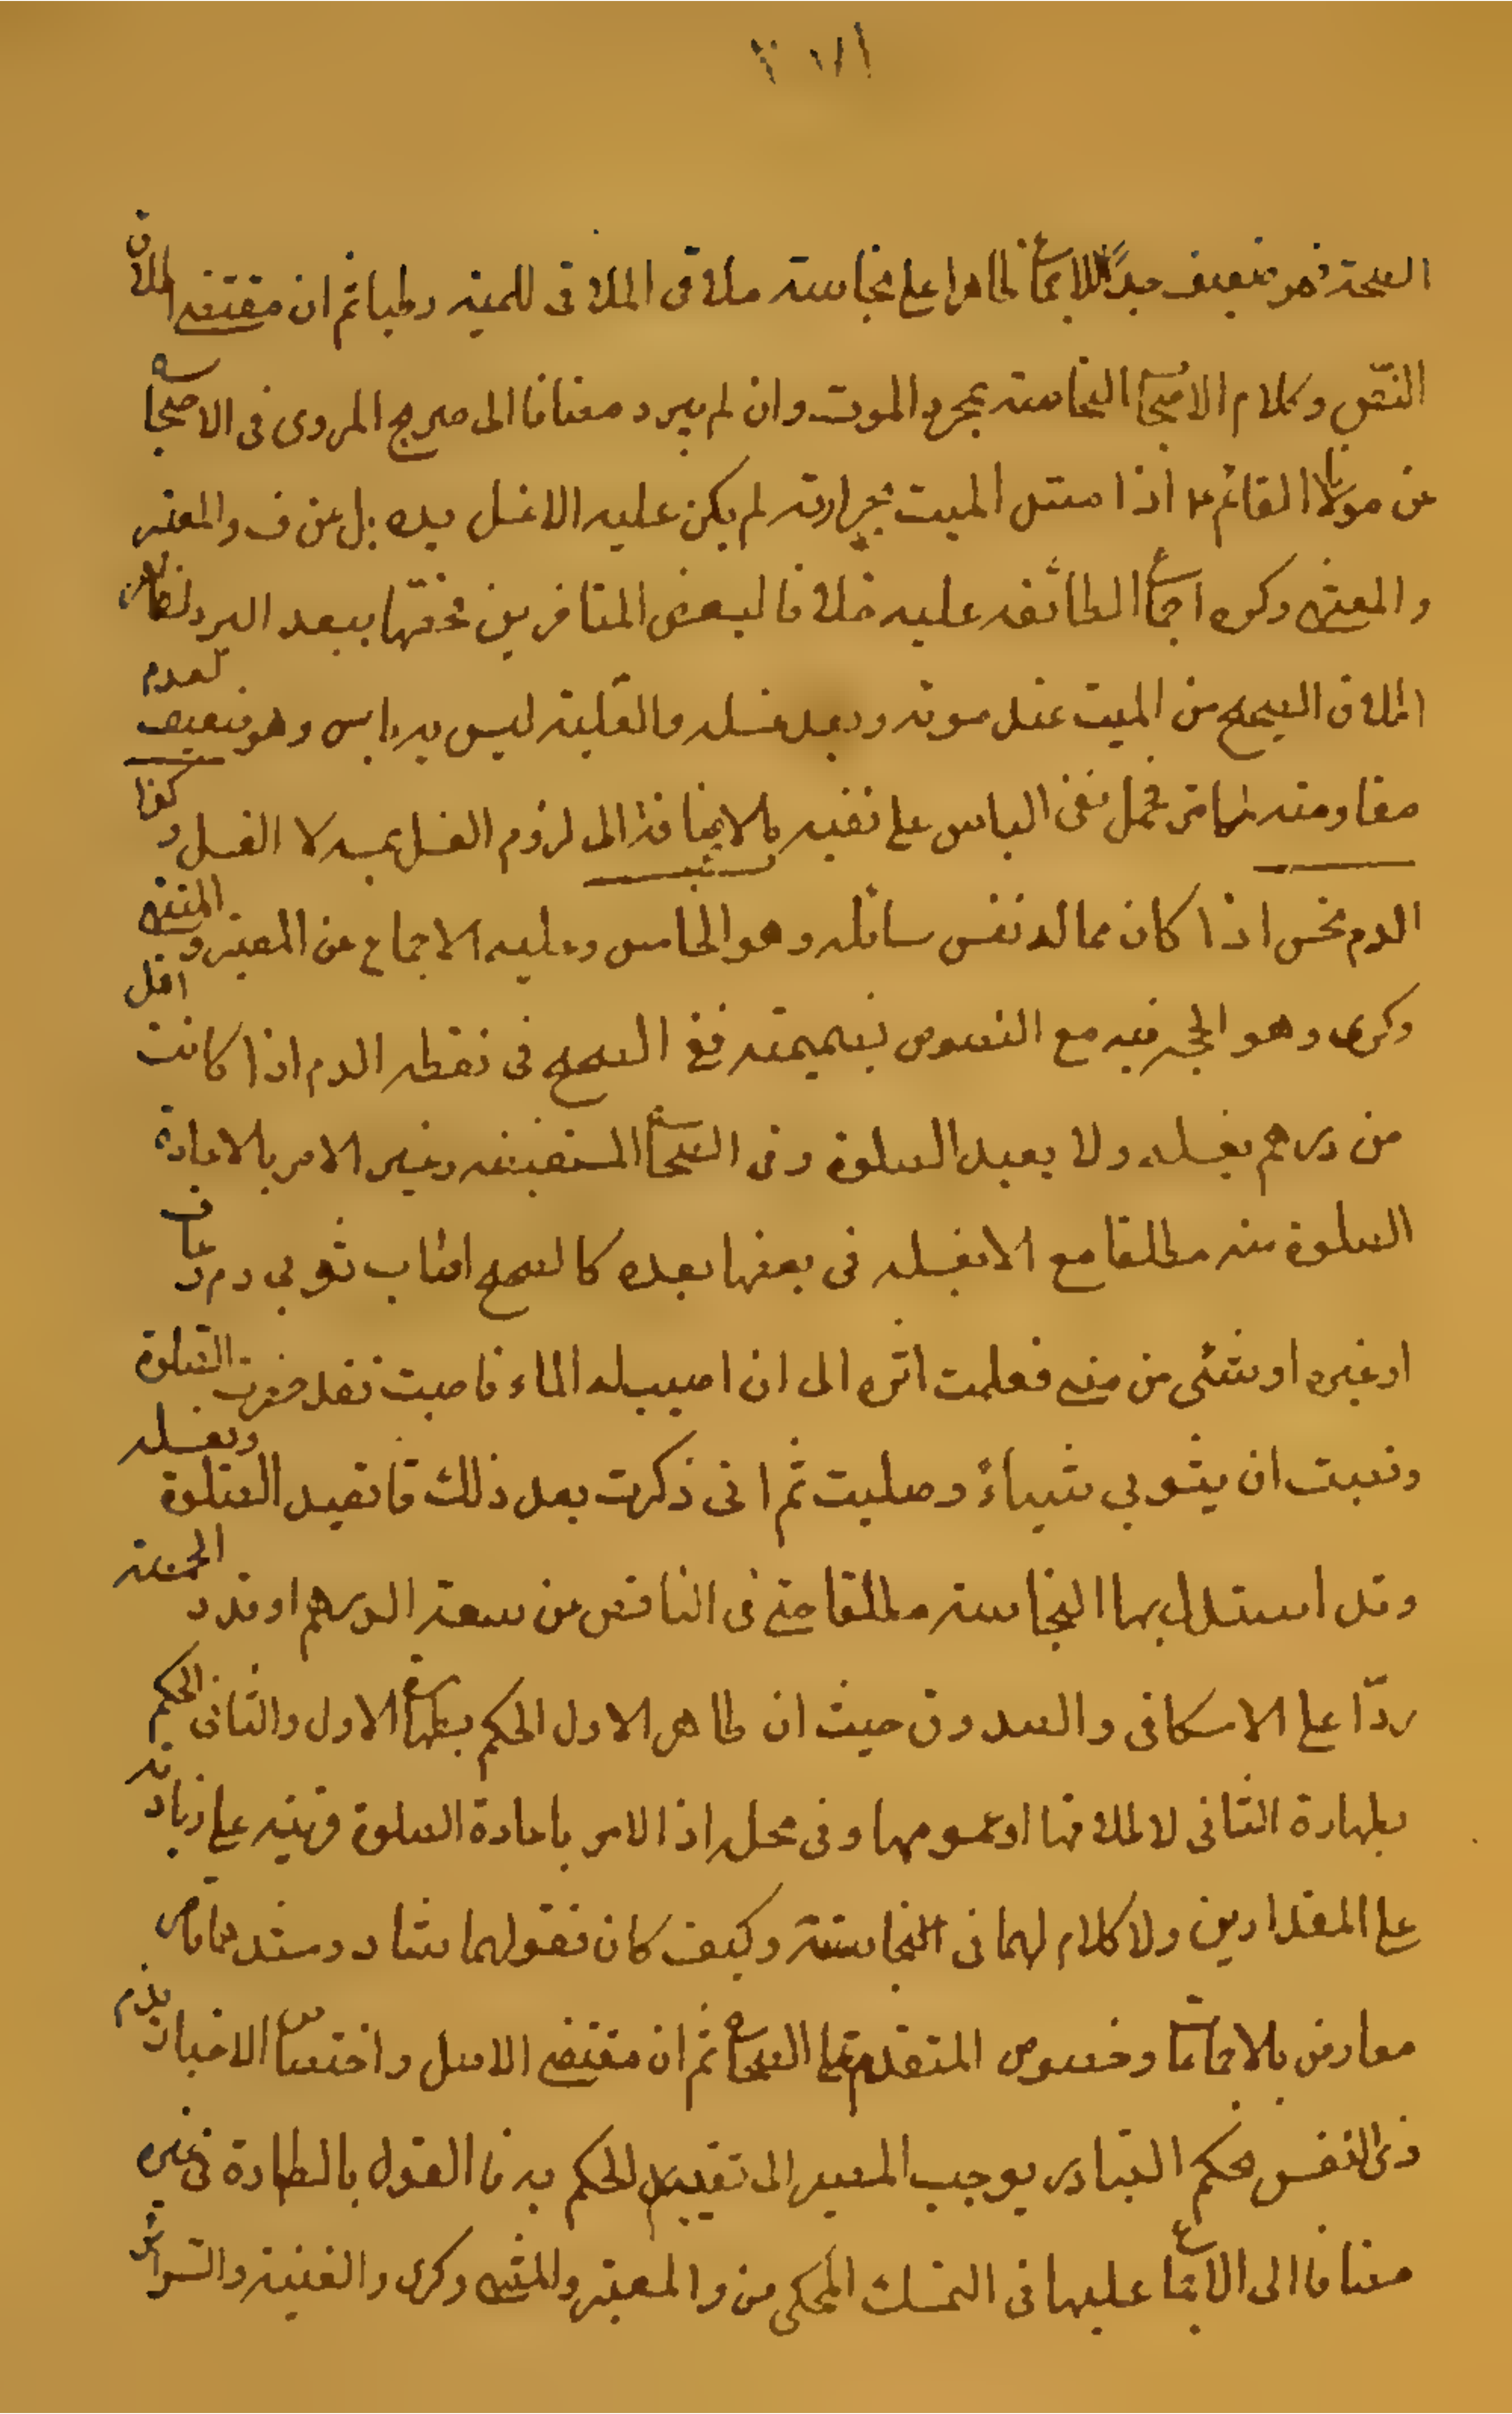 الصحة فهو ضعيف جداً للاجماع ظاهرا على نجاسته ملاقى الملاقى للميته رطبا ثم ان مقتضى اطلاق
النص وكلام الاصحاب النجاسته بمجرد الموت وان لم يبرد مضافا الى صريح المروى فى الاحتجاج
عن مولانا القائم ع اذا مسّ الميت بحرارته لم يكن عليه الا غسل يده بل عن ف والمعتبر
والمنتهى وكره اجماع الطائفه عليه خلافا لبعض المتاخرين فخصّها ببعد البرد لظاهر
اطلاق الصحيح مس الميت عند موته وبعد غسله والقبلة ليس به باس وهو ضعيف لعدم
مقاومته لما مر فحمل نفى الباس على نفيه بالاضافة الى لزوم الغسل بمسه لا الغسل وكذا
الدم نجس اذا كان مما له نفس سائله وهو الخامس وعليه الاجماع عن المعتبر والمنتهى
وكرى وهو الحجه فيه مع النصوص بضميمته ففى الصحيح فى نقطه الدم اذا كانت اقل
من درهم يغسله ولا يعيد الصلوة وفى الصحاح المستفيضه وغيره الامر بالاعادة
الصلوة منه مطلقا مع الامر بغسله فى بعضها بعده كالصحيح اصاب ثوبى دم رعاف
او غيره او شئى من منى فعلمت اثره الى ان اصيب له الماء فاصبت فقد حضرت الصلوة
ونسيت ان بثوبى شيئاً وصليت ثم انى ذكرت بعد ذلك قا تعيد الصلوة وتغسله
وقد استدل بها النجاسته مطلقا حتى فى الناقص عن سعة الدرهم او قدر الحمصه
ردّا على الاسكافى والصدوق حيث ان ظاهر الاول الحكم بطهارة الاول والثانى الحكم
بطهارة الثانى لاطلاقها او عمومها وفى محله اذ الامر باعادة الصلوة قرينه على زيادته
على المقدارين ولا كلام لهما فى النجاسته وكيف كان فقولهما شاذ ومستندهما قاصر
معارض بالاجماعات وخصوص المتقدم من الصحاح ثم ان مقتضى الاصل واختصاص الاخبار بدم
ذى النفس بحكم التبادر يوجب المصير الى تقييد الحكم به فا القول بالطهارة فى غيره
مضافا الى الاجماع عليها فى السمك المحكى عن ف والمعتبر والمنتهى وكرى والغنية والسرائر